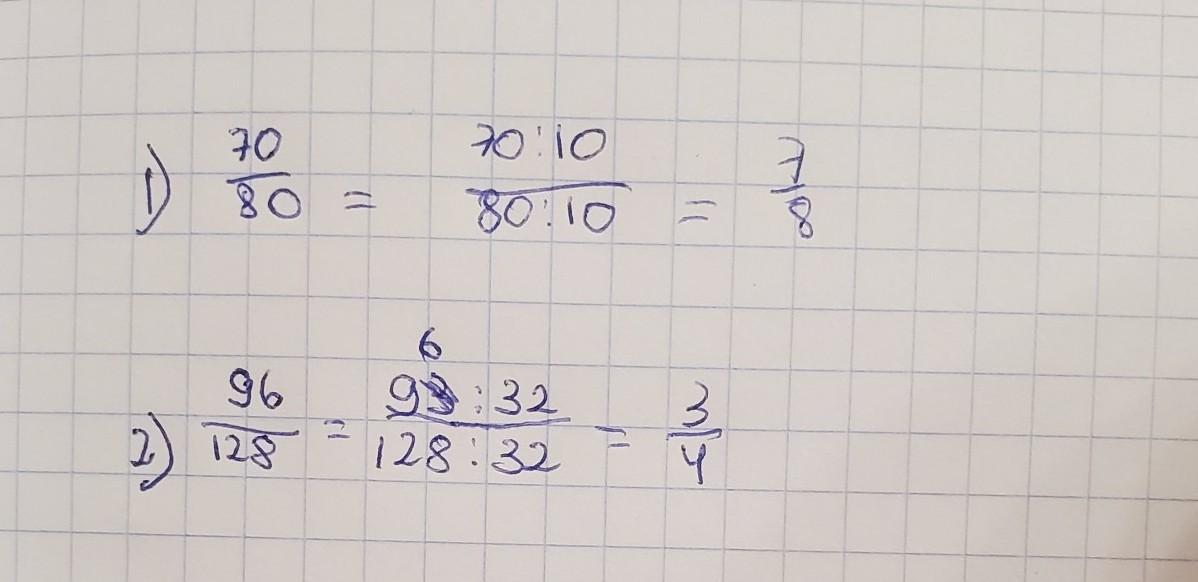 1) 70/80 = 70:10/80:10 = 7/8
2) 96/128 = 96:32/128:32 = 3/4